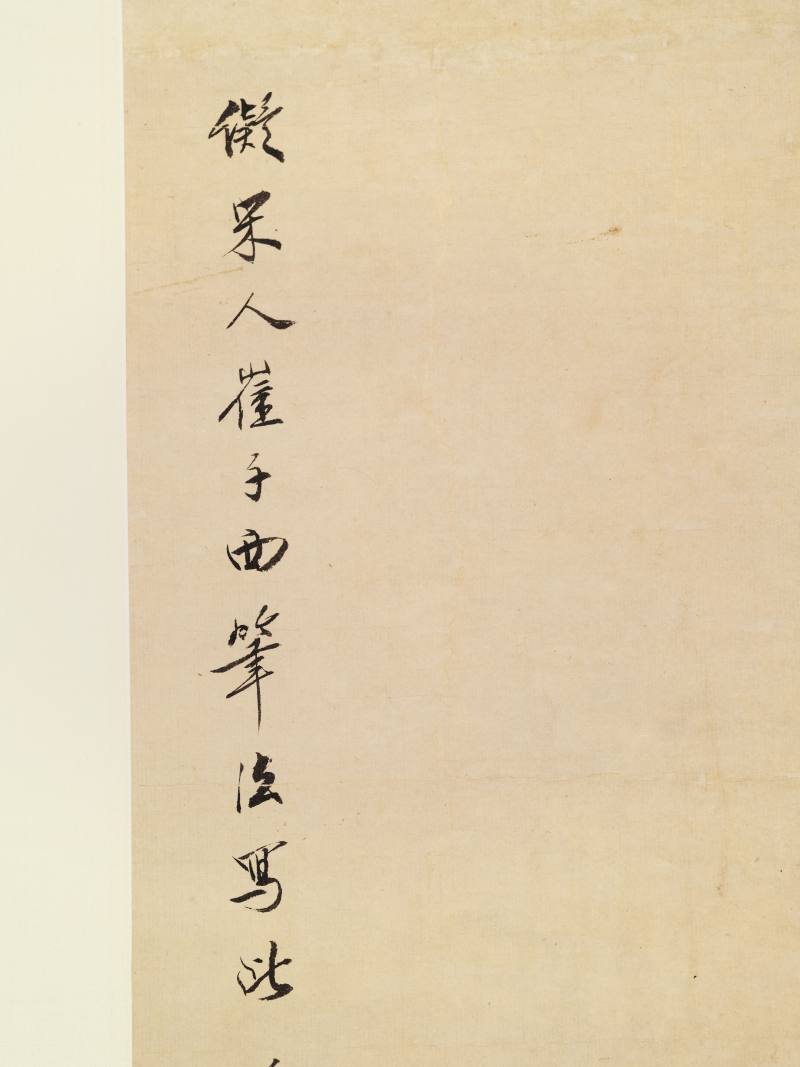 儗宋人崔子西筆法寫此